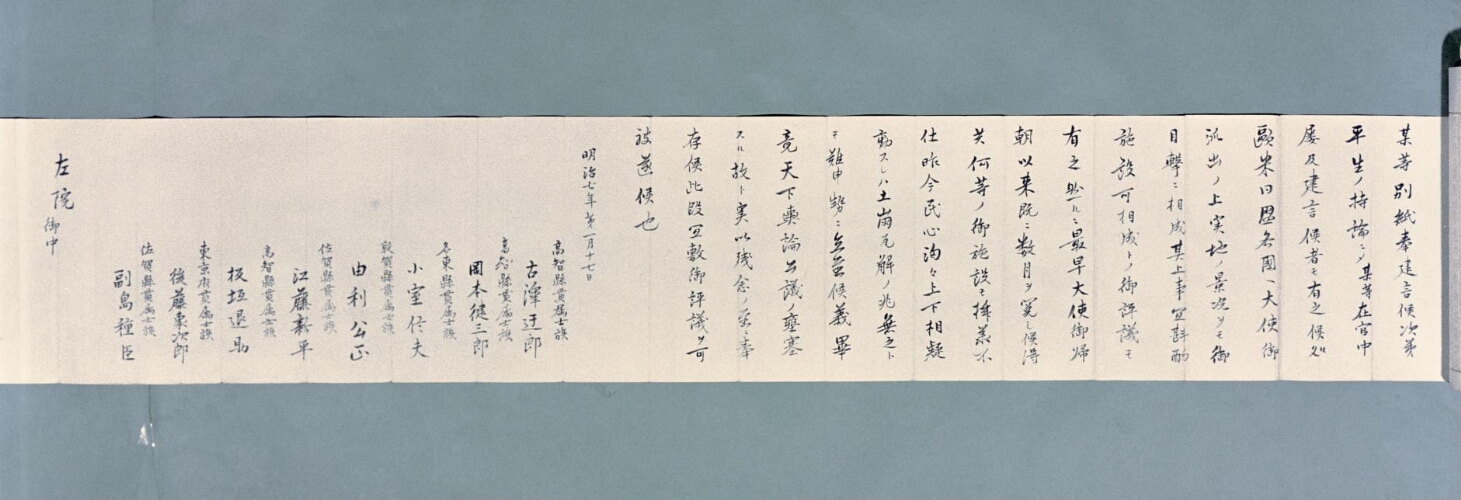 某等別紙奉建言候次第
平生ノ持論ニメ某等在官中
屡及建言候者モ有之候処
欧米同盟各国ヘ大使御
派出ノ上実地ノ景況ヲモ御
目撃ニ相成其上事宜斟酌
施設可相成トノ御評議モ
有之然ルニ最早大使御帰
朝以来既ニ数月ヲ閲シ候得
共何等ノ御施設モ拝承不
仕昨今民心洶々上下相疑
動スレハ土崩瓦解ノ兆無之ト
モ難申勢ニ立至候義畢
竟天下輿論公議ノ壅塞
スル故ト実以残念ノ至ニ奉
存候此段宜敷御評議ヲ可
被遂候也
明治七年第一月十七日
高智縣貫属士族
古澤迂郎
高智縣貫属士族
岡本健三郎
名東縣貫属士族
小室信夫
敦賀縣貫属士族
由利公正
佐賀縣貫属士族
江藤新平
高智縣貫属士族
板垣退助
東京府貫属士族
後藤象次郎
佐賀縣貫属士族
副島種臣
左院
御中